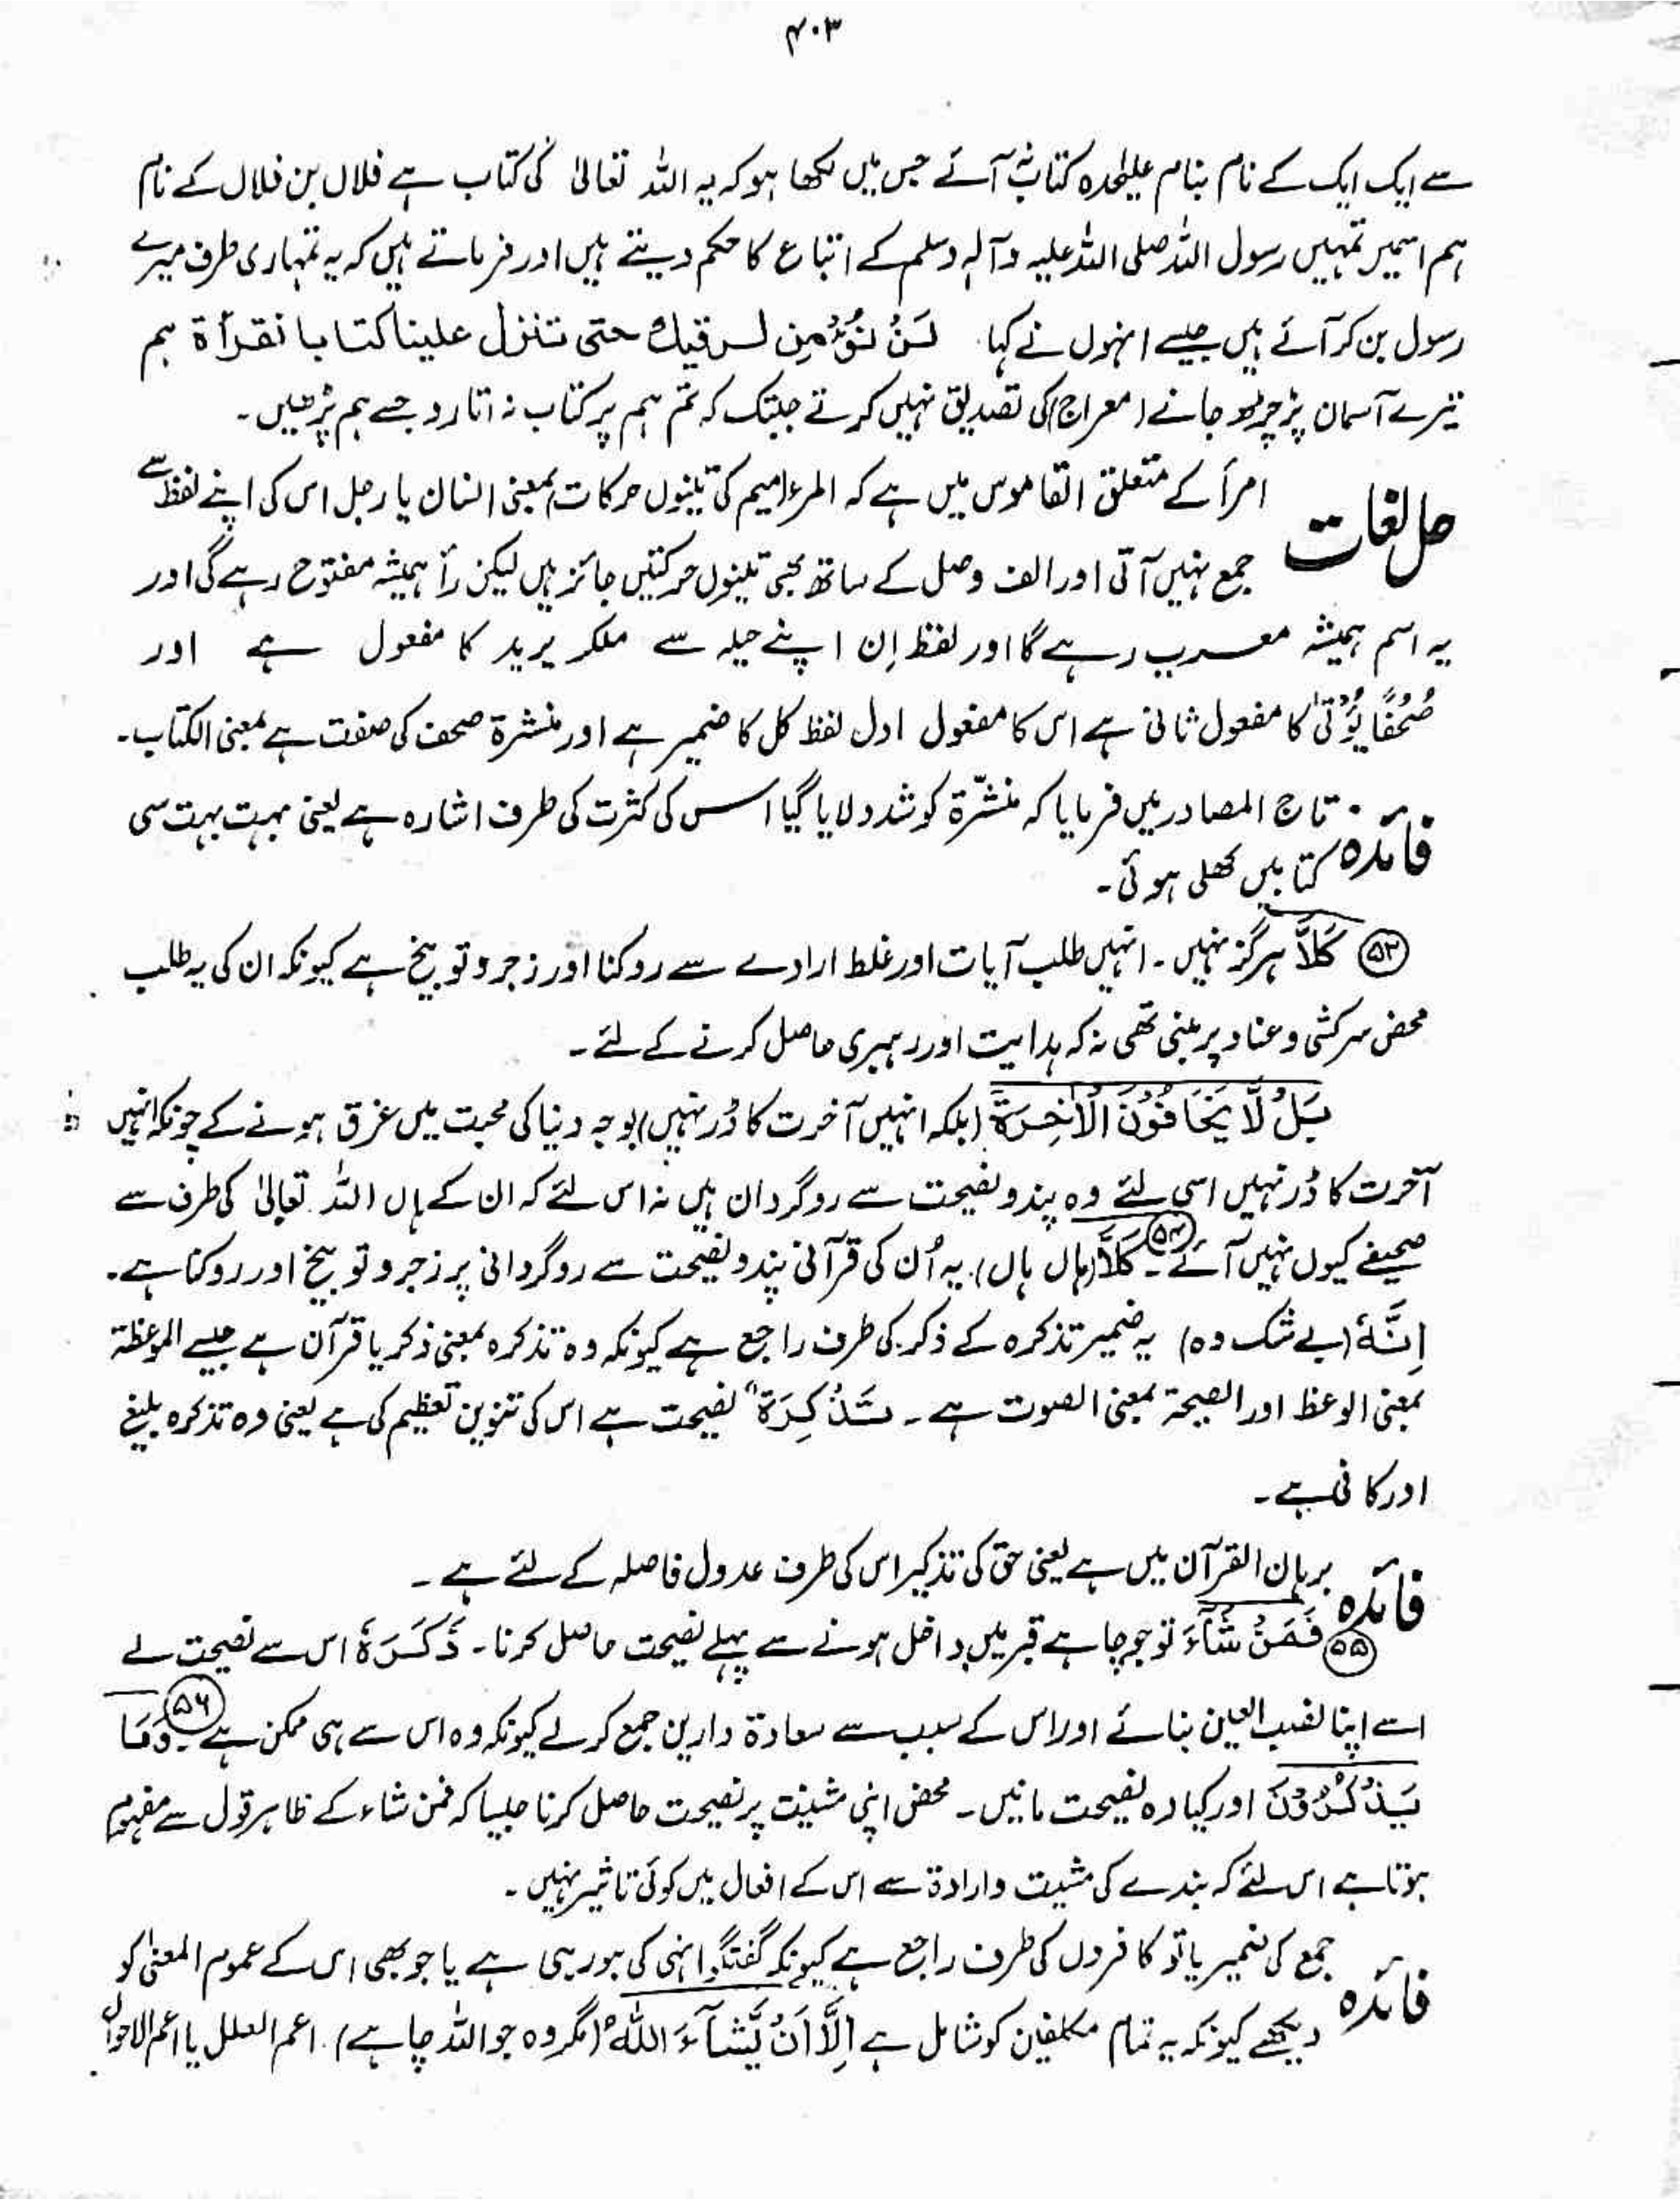 ۴۰۳
سے ایک ایک کے نام بنام علیٰحدہ کتاب آئے جس میں لکھا ہو کہ یہ اللہ تعالیٰ کی کتاب ہے فلاں بن فلاں کے نام
ہم اسمیں تمہیں رسول اللہ صلی اللہ علیہ وآلہٖ وسلم کے اتباع کا حکم دیتے ہیں اور فرماتے ہیں کہ یہ تمہاری طرف میرے
رسول بن کر آئے ہیں جیسے انہوں نے کہا لَنْ نُؤْمِنَ لرقیك حتی تنزل علینا کتابا نقرأۃ ہم
تیرے آسمان پر چڑھ جانے (معراج) کی تصدیق نہیں کرتے جبتک کہ تم ہم پر کتاب نہ اتارو جسے ہم پڑھیں۔
حل لغات امرأ کے متعلق القاموس میں ہے کہ المرء (میم کی تینوں حرکات) بمعنی انسان یا رجل اس کی اپنے لفظ سے
جمع نہیں آتی اور الف وصل کے ساتھ بھی تینوں حرکتیں جائز ہیں لیکن رأ ہمیشہ مفتوح رہے گی اور
یہ اسم ہمیشہ معرب رہے گا اور لفظ اِن اپنے حیلہ سے ملکر یرید کا مفعول ہے اور
صُحُفًا یُؤْتیٰ کا مفعول ثانی ہے اس کا مفعول اول لفظ کل کا ضمیر ہے اور منشرۃ صحف کی صفت ہے بمعنی الکتاب۔
فائدہ تاج المصادر میں فرمایا کہ منشّرۃ کو شد و لایا گیا اس کی کثرت کی طرف اشارہ ہے یعنی بہت بہت سی
کتابیں کھلی ہوئی۔
۵۳ کَلَّا ہرگز نہیں۔ انہیں طلب آیات اور غلط ارادے سے روکنا اور زجر و توبیخ ہے کیونکہ ان کی یہ طلب
محض سرکشی و عناد پر مبنی تھی نہ کہ ہدایت اور رہبری حاصل کرنے کے لئے۔
بَلْ لَّا یَخَافُوْنَ الْاٰخِرَةَ (بلکہ انہیں آخرت کا ڈر نہیں) بوجہ دنیا کی محبت میں غرق ہونے کے چونکہ انہیں
آخرت کا ڈر نہیں اسی لئے وہ پند و نصیحت سے روگردان ہیں نہ اس لئے کہ ان کے ہاں اللہ تعالیٰ کی طرف سے
صحیفے کیوں نہیں آئے۔ ۵۴ کَلَّا (ہاں ہاں) یہ اُن کی قرآنی پند و نصیحت سے روگردانی پر زجر و توبیخ اور روکنا ہے۔
اِنَّهٗ (بے شک وہ) یہ ضمیر تذکرہ کے ذکر کی طرف راجع ہے کیونکہ وہ تذکرہ بمعنی ذکر یا قرآن ہے جیسے الموعظۃ
بمعنی الوعظ اور الصیحۃ بمعنی الصوت ہے۔ تَذْکِرَةٌ نصیحت ہے اس کی تنوین تعظیم کی ہے یعنی وہ تذکرہ بلیغ
اور کافی ہے۔
فائدہ برہان القرآن میں ہے یعنی حق کی تذکیر اس کی طرف عدول فاصلہ کے لئے ہے۔
۵۵ فَمَنْ شَآءَ تو جو چاہے قبر میں داخل ہونے سے پہلے نصیحت حاصل کرنا۔ ذَکَرَهٗ اس سے نصیحت لے
اسے اپنا نصب العین بنائے اور اس کے سبب سے سعادۃ دارین جمع کر لے کیونکہ وہ اس سے ہی ممکن ہے۔ ۵۶ وَمَا
یَذْکُرُوْنَ اور کیا وہ نصیحت مانیں۔ محض اپنی مشیّت پر نصیحت حاصل کرنا جیسا کہ فمن شاء کے ظاہر قول سے مفہوم
ہوتا ہے اس لئے کہ بندے کی مشیت و ارادۃ سے اس کے افعال میں کوئی تاثیر نہیں۔
فائدہ جمع کی ضمیر یا تو کافروں کی طرف راجع ہے کیونکہ گفتگو انہی کی ہو رہی ہے یا جو بھی اس کے عموم المعنیٰ کو
دیکھے کیونکہ یہ تمام مکلفین کو شامل ہے اِلَّا اَنْ یَّشَآءَ اللّٰهُ (مگر وہ جو اللہ چاہے)۔ اعم العلل یا اعم الاحوال